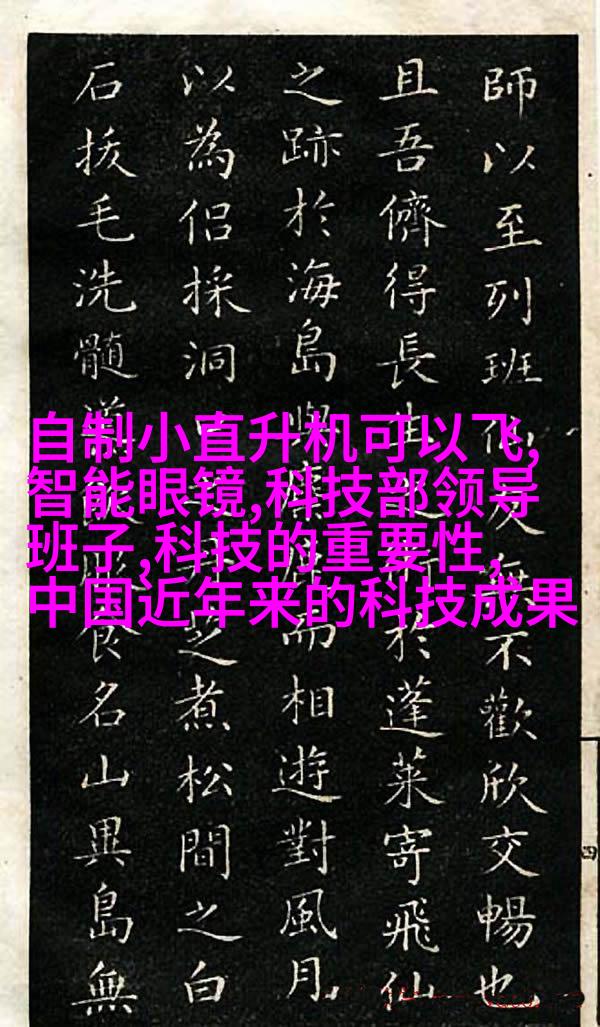 自制小直升机可以飞,
智能眼镜,科技部领导
班子,科技的重要性,
中国近年来的科技成果
師以至列班友無不歡欣交暢也
且吾儕得長生於蓬萊寄飛仙
之跡於海島與居而相遊對風月
以為侶採洞芝煮松間之白
石拔毛洗髓導食名山異島無
四